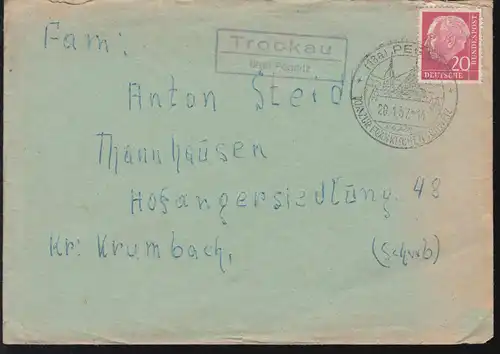 Fam:
Trockau
über Pegnitz
20
DEUTSCHE
BUNDESPOST
(13a) PE
20.1.57-11
Anton Steid
Thannhausen
Hofangersiedlung 48
Kr: Krumbach, (Schwb)